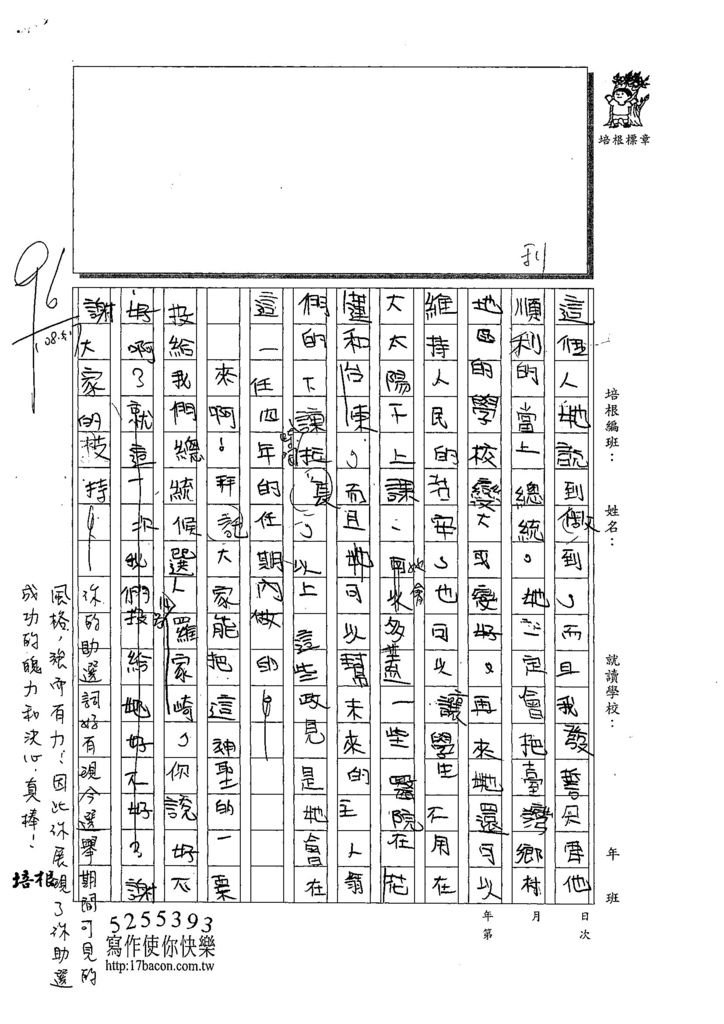 培根標章
刊
培根編班：
姓名：
就讀學校：
年
班
日
次
月
年
第
96
108.5.1
這個人她說到做到，而且我發誓只要他
順利的當上總統。她一定會把臺灣鄉村
地區的學校變大或變好。再來她還可以
維持人民的治安，也可以讓學生不用在
大太陽下上課；她會多蓋一些醫院在花
蓮和台東，而且她可以幫未來的主人翁
們的下課。以上這些政見是她會在
這一任四年的任期內做的！
來啊！拜託大家能把這神聖的一票
投給我們總統候選人羅家崎，你說好不
好啊？就這一次我們投給她好不好？謝
謝大家的支持！
你的助選詞好有現今選舉期間可見的
風格，強而有力！因此你展現了你助選
成功的魄力和決心，真棒！
培根
5255393
寫作使你快樂
http:17bacon.com.tw